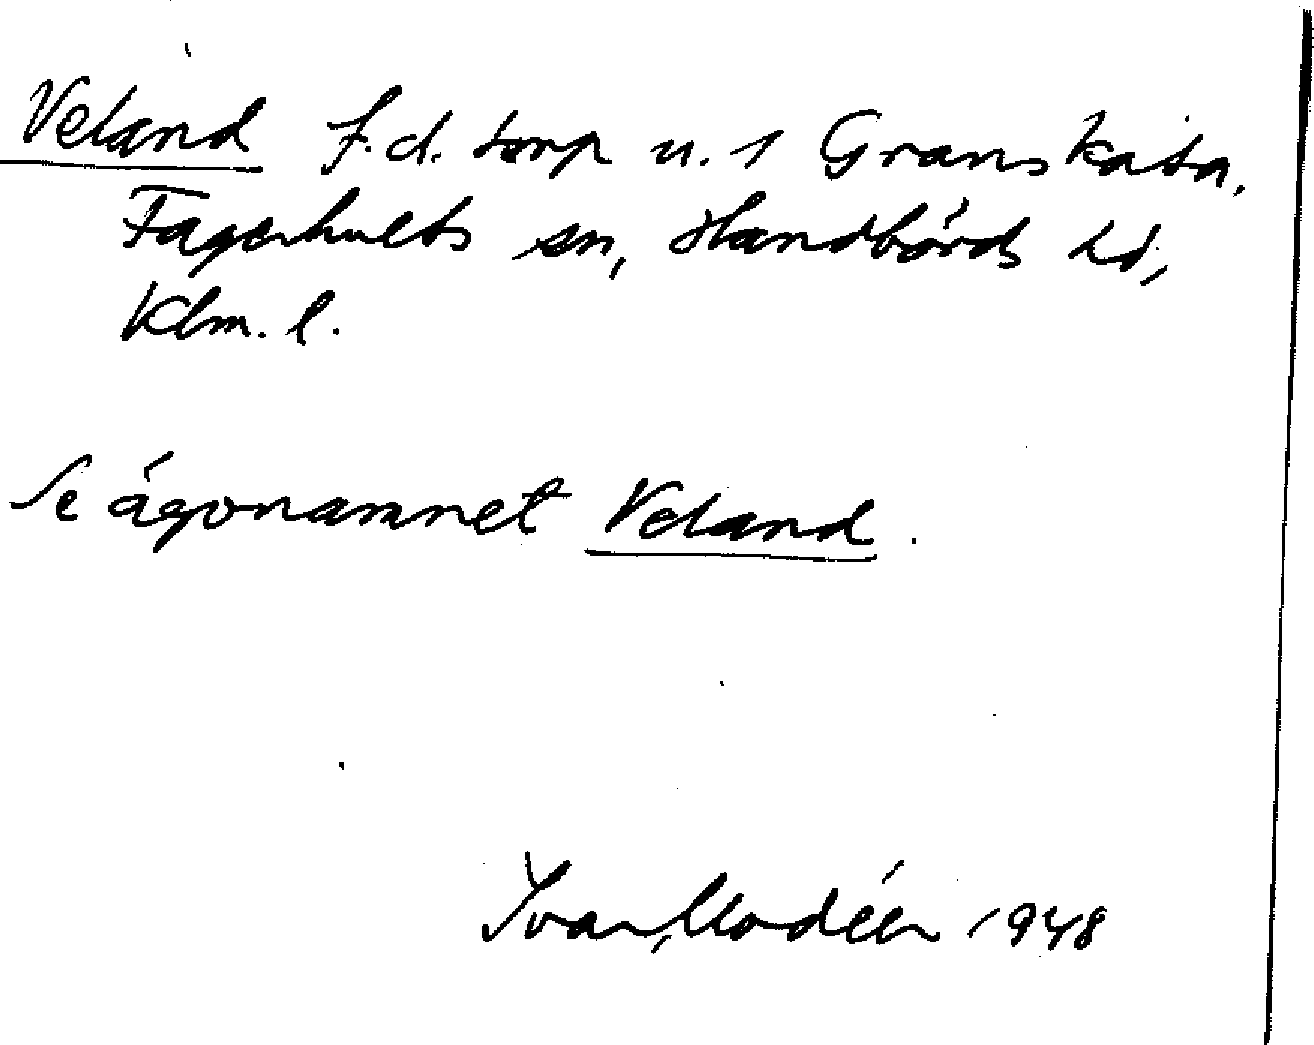 Veland f.d. torp u. 1 Granskata,
Fagerhults sn, Handbörds hd,
Klm. l.
Se ägonamnet Veland.
Ivar Modéer 1948